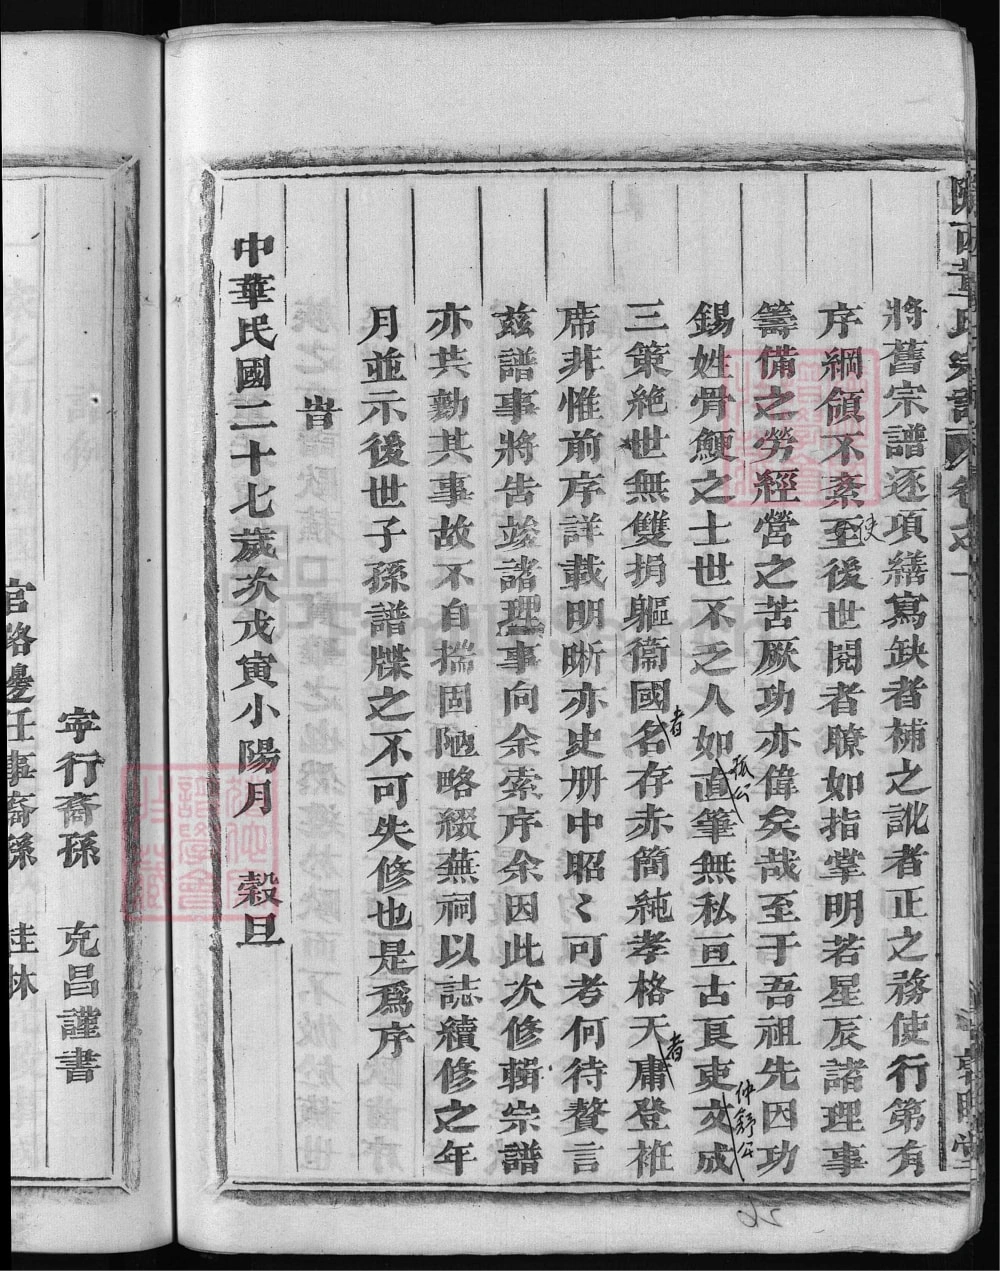 隴西董氏宗譜 卷之一
將舊宗譜逐項繕寫缺者補之訛者正之務使行第有
序綱領不紊至後世閱者瞭如指掌明若星辰諸理事
使
籌備之勞經營之苦厥功亦偉矣哉至于吾祖先因功
錫姓骨鯁之士世不乏人如直筆無私亘古良吏文成
狐公
仲舒公
三策絶世無雙捐軀衞國名存赤簡純孝格天庸登袵
者
者
席非惟前序詳載明晰亦史册中昭〻可考何待贅言
兹譜事將告竣諸理事向余索序余因此次修輯宗譜
亦共勷其事故不自揣固陋略綴蕪祠以誌續修之年
月並示後世子孫譜牒之不可失修也是爲序
旹
中華民國二十七歲次戊寅小陽月 穀旦
26
宇行裔孫 克昌謹書
官路邊任事裔孫 桂林